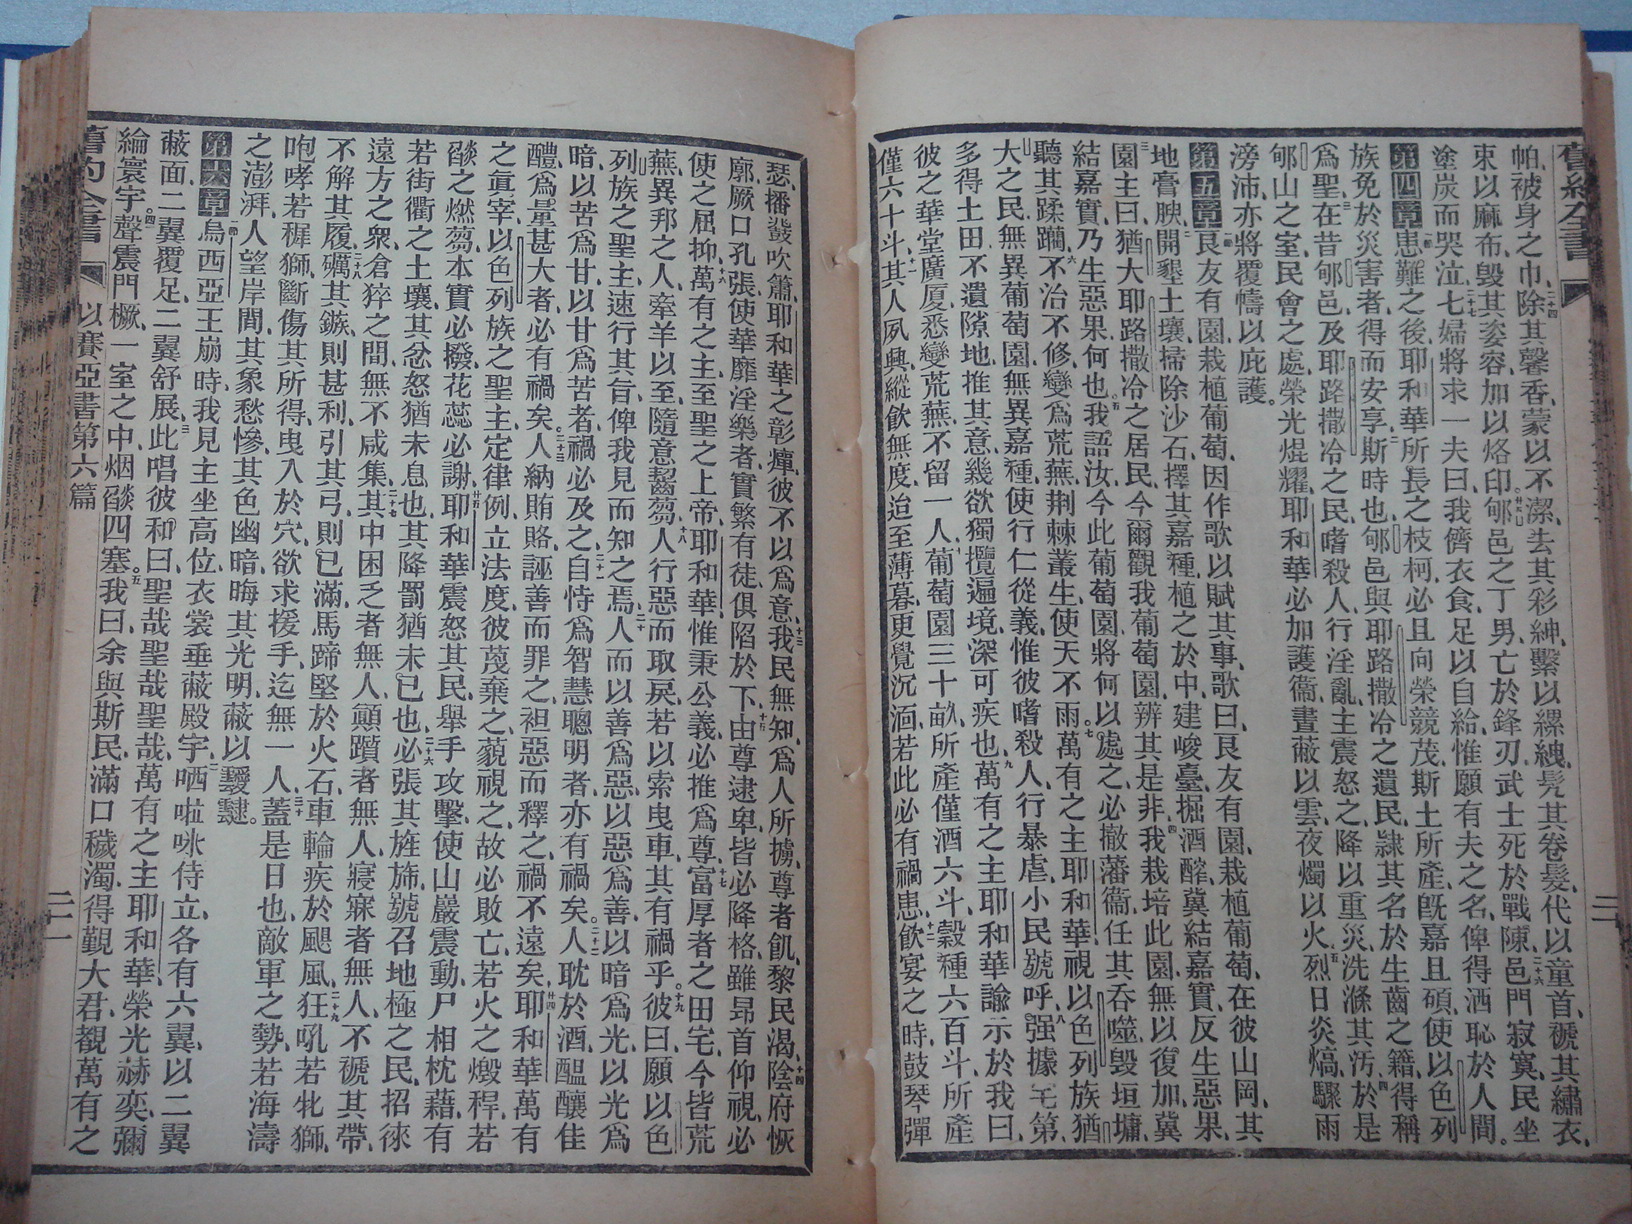 舊約全書
帕、被身之巾、二十四除其馨香、蒙以不潔、去其彩紳、繫以縲絏、髡其卷髮、代以童首、褫其繡衣、
束以麻布、毀其姿容、加以烙印。郇邑之丁男、亡於鋒刃、武士死於戰陳、二十六邑門寂寞、民坐
塗炭而哭泣、二十七七婦將求一夫曰、我儕衣食、足以自給、惟願有夫之名、俾得洒恥於人間。
第四章一節患難之後、耶和華所長之枝柯、必且向榮競茂、斯土所產、旣嘉且碩、使以色列
族免於災害者、得而安享、二斯時也、郇邑與耶路撒冷之遺民、隷其名於生齒之籍、得稱
爲聖、三在昔郇邑、及耶路撒冷之民、嗜殺人、行淫亂、主震怒之、降以重災、洗滌其汚、四於是
郇山之室、民會之處、榮光焜耀、耶和華必加護衞、晝蔽以雲、夜燭以火、五烈日炎熇、驟雨
滂沛、亦將覆幬以庇護。
第五章一節良友有園、栽植葡萄、因作歌以賦其事、歌曰、良友有園、栽植葡萄、在彼山岡、其
地膏腴、二開墾土壤、掃除沙石、擇其嘉種、植之於中、建峻臺、掘酒醡、冀結嘉實、反生惡果、
三園主曰、猶大耶路撒冷之居民、今爾觀我葡萄園、辨其是非、四我栽培此園、無以復加、冀
結嘉實、乃生惡果、何也。五我語汝、今此葡萄園、將何以處之、必撤藩衞、任其吞噬、毀垣墉、
聽其蹂躪、六不治不修、變爲荒蕪、荆棘叢生、使天不雨、七萬有之主耶和華視以色列族、猶
大之民、無異葡萄園、無異嘉種、使行仁從義、惟彼嗜殺人、行暴虐、小民號呼、八强據宅第、
多得土田、不遺隙地、推其意、幾欲獨攬遍境、深可疾也、九萬有之主耶和華諭示於我曰、
彼之華堂廣厦、悉變荒蕪、不留一人、十葡萄園三十畝、所產僅酒六斗、穀種六百斗、所產
僅六十斗、十一其人夙興、縱飲無度、迨至薄暮、更覺沉湎、若此必有禍患、十二飲宴之時、鼓琴彈
瑟、播鼗吹簫、耶和華之彰癉、彼不以爲意、十三我民無知、爲人所擄、尊者飢、黎民渴、十四陰府恢
廓、厥口孔張、使華靡淫樂者、實繁有徒、俱陷於下、十五由尊逮卑、皆必降格、雖昂首仰視、必
使之屈抑、十六萬有之主、至聖之上帝、耶和華、惟秉公義、必推爲尊、十七富厚者之田宅、今皆荒
蕪、異邦之人、牽羊以至、隨意齧芻、十八人行惡而取戾、若以索曳車、其有禍乎。十九彼曰、願以色
列族之聖主、速行其旨、俾我見而知之、二十焉人而以善爲惡、以惡爲善、以暗爲光、以光爲
暗、以苦爲甘、以甘爲苦者、禍必及之、二十一自恃爲智慧聰明者、亦有禍矣。二十二人耽於酒、醞釀佳
醴、爲量甚大者、必有禍矣、二十三人納賄賂、誣善而罪之、袒惡而釋之、禍不遠矣、廿四耶和華萬有
之眞宰、以色列族之聖主、定律例、立法度、彼蔑棄之、藐視之、故必敗亡、若火之燬稈、若
燄之燃芻、本實必撥、花蕊必謝、廿五耶和華震怒其民、舉手攻擊、使山巖震動、尸相枕藉、有
若街衢之土壤、其忿怒猶未息也、其降罰猶未已也、二十六必張其旌旆、號召地極之民、招徠
遠方之衆、倉猝之間、無不咸集、二十七其中困乏者無人、顚躓者無人、寢寐者無人、不褫其帶、
不解其履、二十八礪其鏃則甚利、引其弓則已滿、馬蹄堅於火石、車輪疾於颶風、二十九狂吼若牝獅、
咆哮若穉獅、斷傷其所得、曳入於穴、欲求援手、迄無一人、三十蓋是日也、敵軍之勢、若海濤
之澎湃、人望岸間、其象愁慘、其色幽暗、晦其光明、蔽以靉靆。
第六章一節烏西亞王崩時、我見主坐高位、衣裳垂蔽殿宇、二哂啦咪侍立、各有六翼、以二翼
蔽面、二翼覆足、二翼舒展、三此唱彼和曰、聖哉聖哉聖哉、萬有之主耶和華、榮光赫奕、彌
綸寰宇。四聲震門橛、一室之中、烟燄四塞。五我曰、余與斯民滿口穢濁、得覲大君、覩萬有之
舊約全書 以賽亞書第六篇 二十一